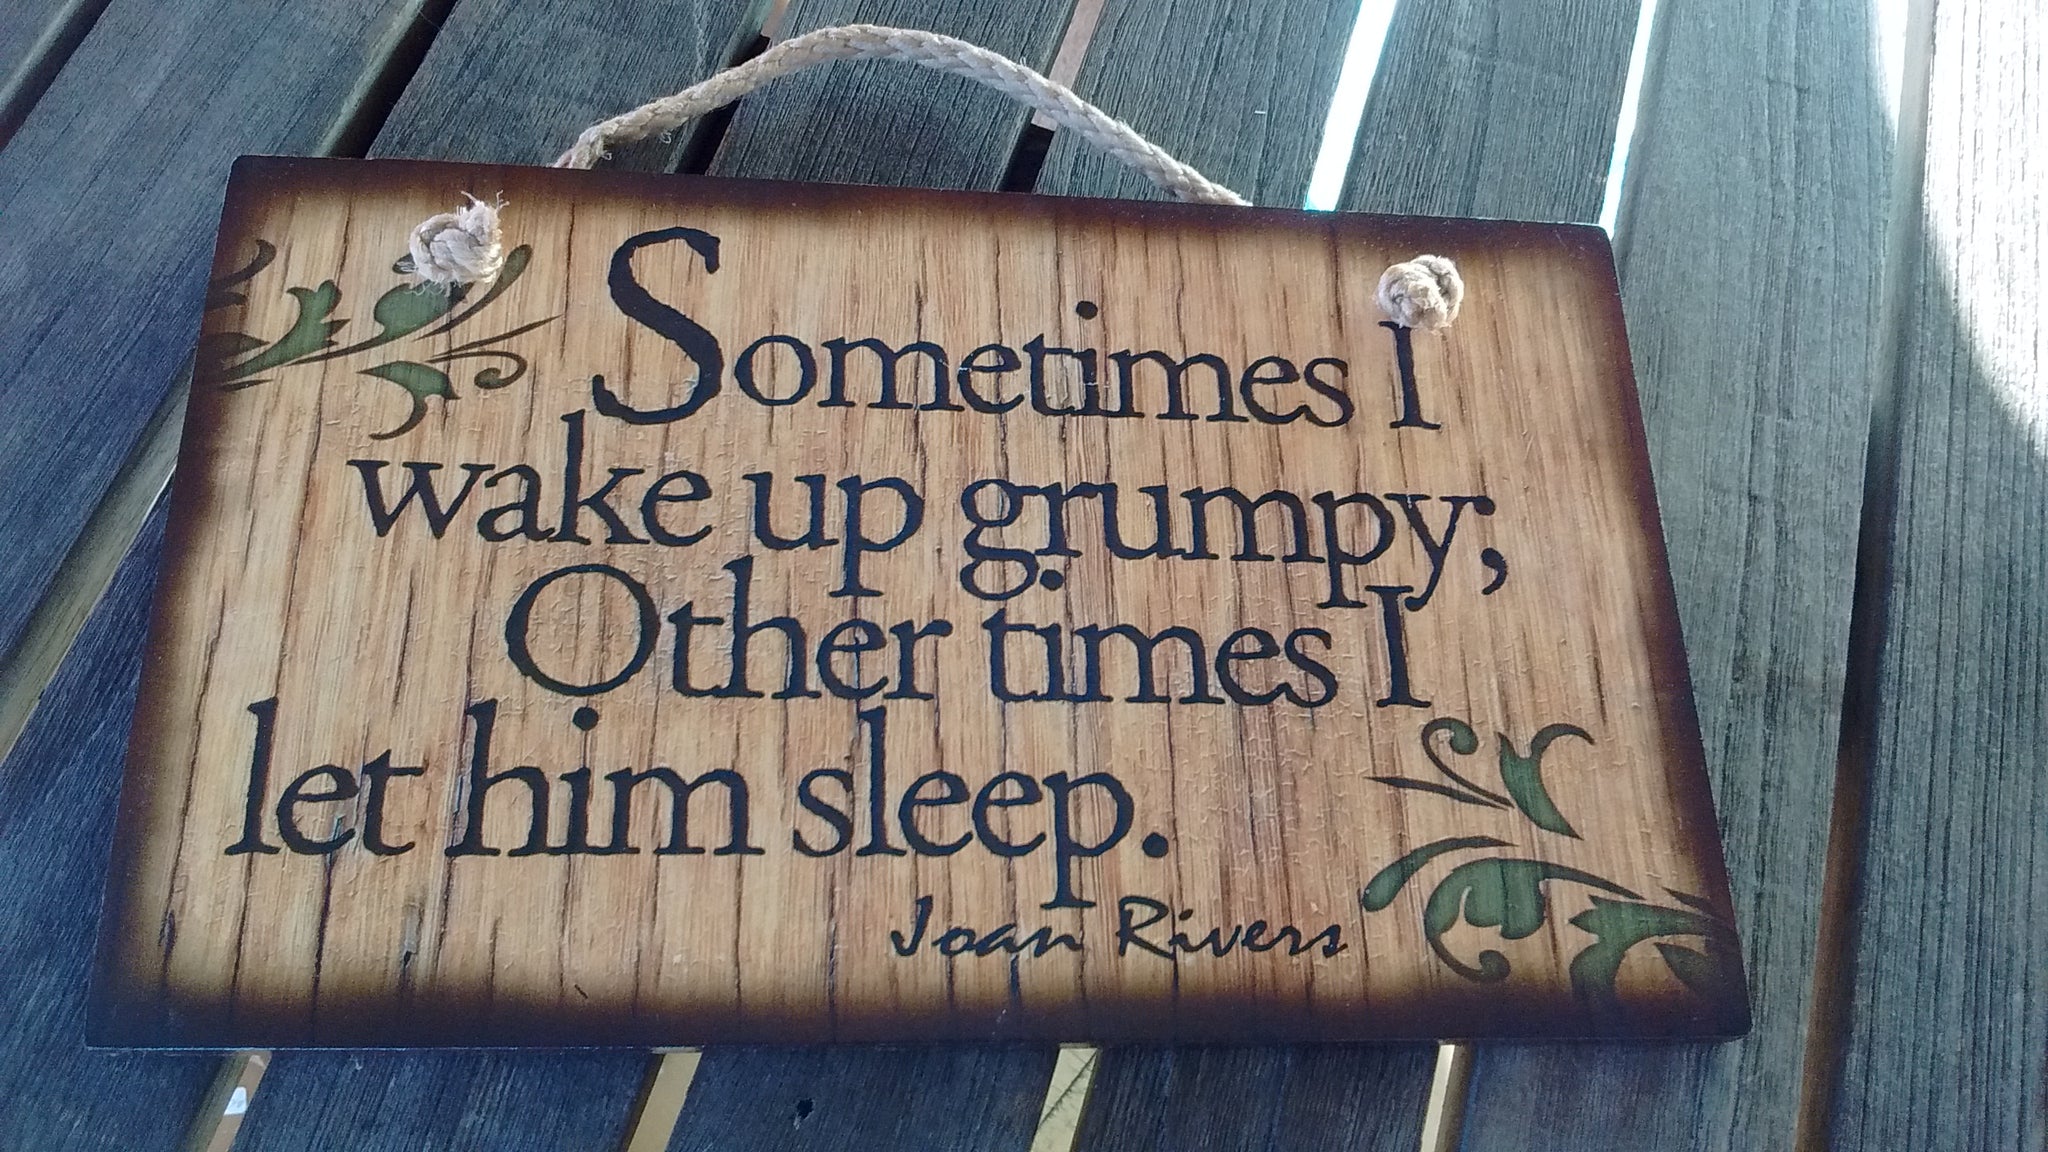 Sometimes I
wake up grumpy;
Other times I
let him sleep.
Joan Rivers